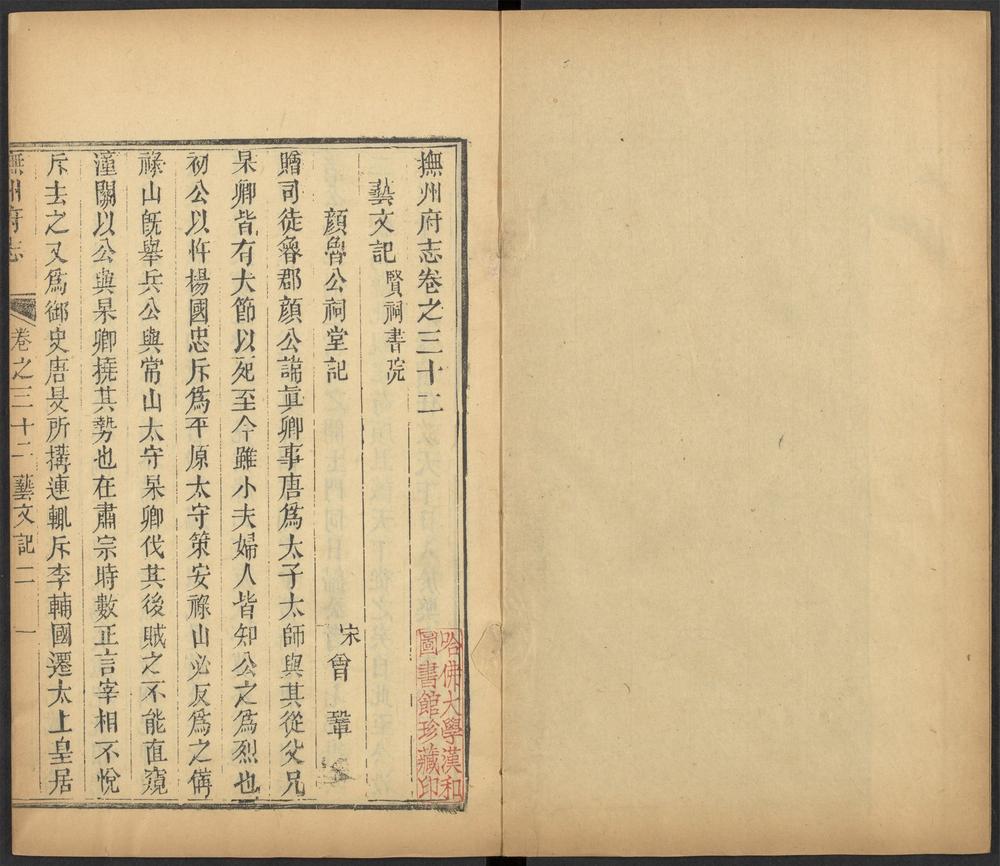 撫州府志卷之三十二
藝文記 賢祠書院
顔魯公祠堂記
宋曾鞏
贈司徒魯郡顔公諱眞卿事唐爲太子太師與其從父兄
杲卿皆有大節以死至今雖小夫婦人皆知公之爲烈也
初公以忤楊國忠斥爲平原太守策安祿山必反爲之備
祿山旣舉兵公與常山太守杲卿伐其後賊之不能直窺
潼關以公與杲卿撓其勢也在肅宗時數正言宰相不悅
斥去之又爲御史唐旻所搆連輒斥李輔國遷太上皇居
撫州府志
卷之三十二 藝文記二
一
哈佛大學漢和
圖書館珍藏印